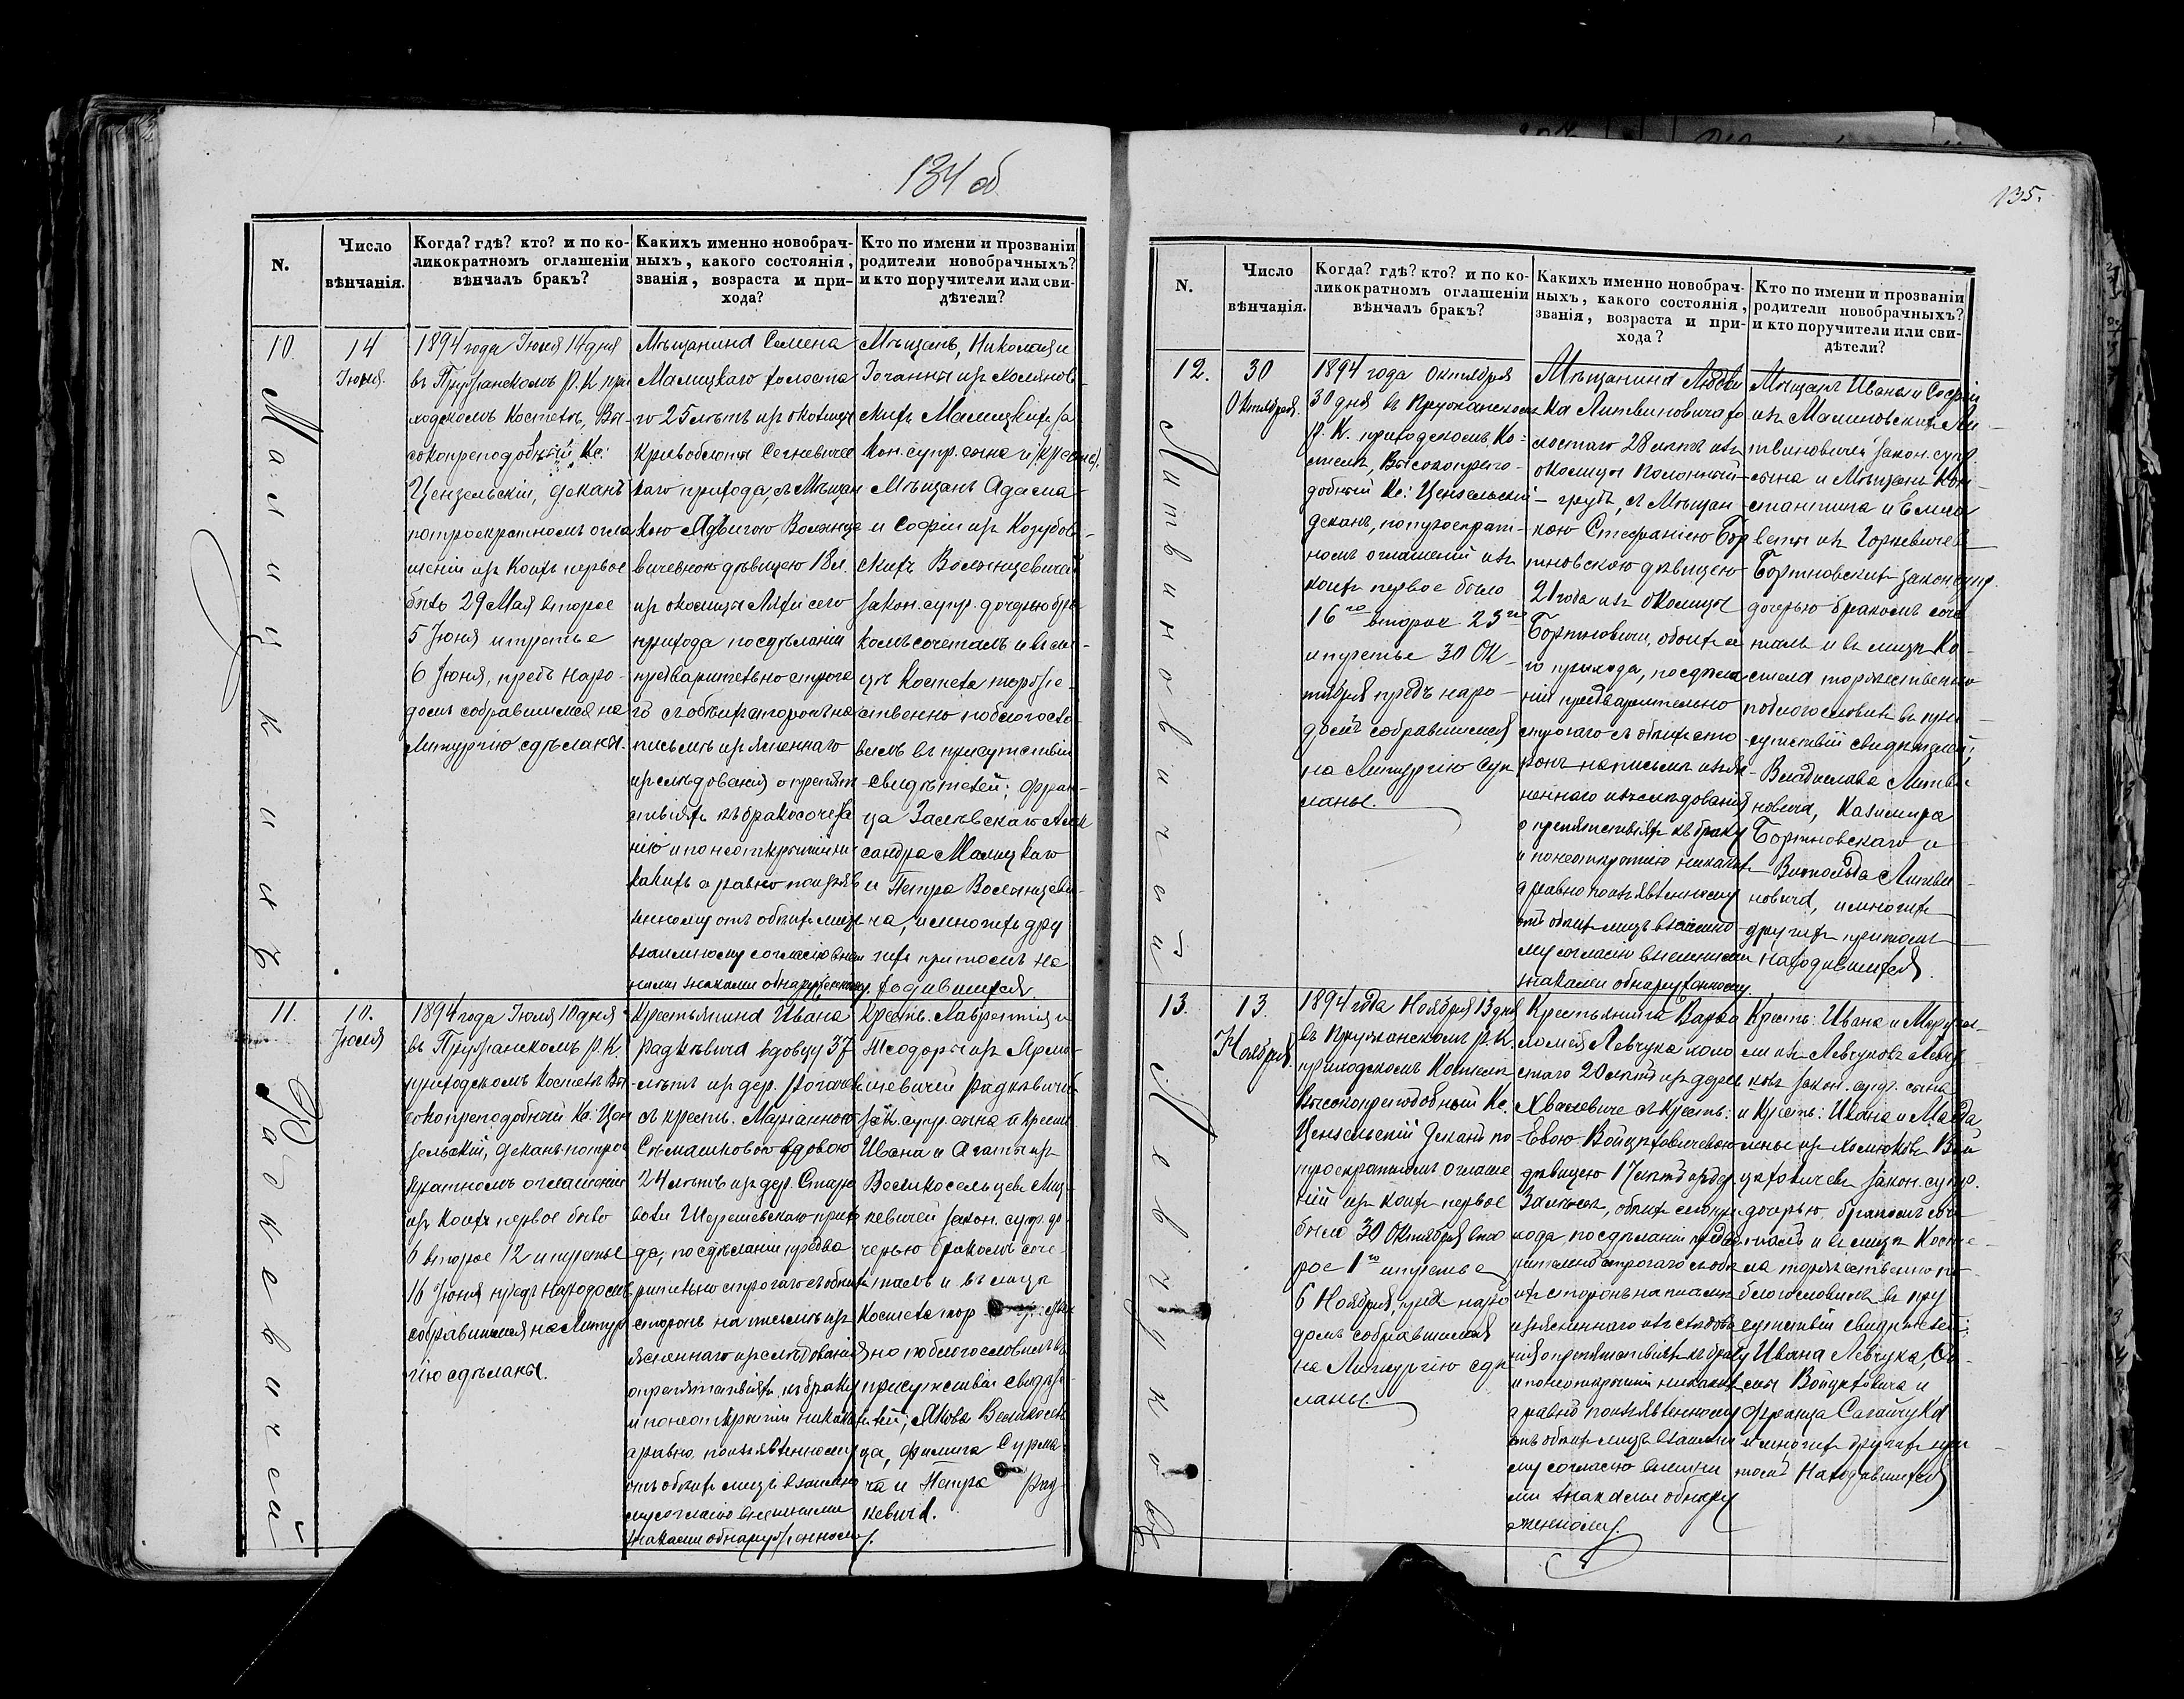 134 об
N.
Число
вѣнчанія.
Когда? гдѣ? кто? и по ко-
ликократномъ оглашеніи
вѣнчалъ бракъ?
Какихъ именно новобрач-
ныхъ, какого состоянія,
званія, возраста и при-
хода?
Кто по имени и прозванію
родители новобрачныхъ?
и кто поручители или сви-
дѣтели?
10.
Малицкихъ
14
Іюня.
1894 года Іюня 14 дня
въ Пружанскомъ Р. К. при
ходскомъ Костелѣ, Вы-
сокопреподобный Кс:
Цензельскій, деканъ
по троекратномъ огла
шеніи изъ коихъ первое
было 29 Мая второе
5 Іюня и третье
6 Іюня, предъ наро-
домъ собравшимся на
Литургію сдѣланы.
Мѣщанина Семена
Малицкаго холоста
го 25 лѣтъ изъ околицы
Кривоблоты Сегневичес
каго прихода, съ Мѣщан
кою Ядвигою Волянце
вичевною дѣвицею 18 л.
изъ околицы сего
прихода по сдѣланіи
предварительно строга
го съ обѣихъ сторонъ на
письмѣ изъясненнаго
изслѣдованія о препят
ствіяхъ къ бракосочета
нію и по неоткрытіи ни
какихъ а равно по изъяв
ленному отъ обѣихъ лицъ
взаимному согласію внѣш
ними знаками обнаруженному.
Мѣщанъ, Николая и
Іоганны изъ Холянов-
скихъ Малицкихъ за
кон. супр. сына и
Мѣщанъ Адама
и Софіи изъ Козубов-
скихъ Волянцевичей
закон. супр. дочерью бра
комъ сочеталъ и въ ли-
цѣ Костела торже-
ственно поблагосло-
велъ въ присутствіи
свидѣтелей; Фран-
ца Заслѣвскаго Алек
сандра Малицкаго
и Петра Волянцеви-
ча, и многихъ дру
гихъ притомъ на
ходившихся.
11.
Радкевичей
10.
Іюля
1894 года Іюля 10 дня
въ Пружанскомъ Р. К.
приходскомъ Костелѣ Вы-
сокопреподобный Кс: Цен
зельскій, деканъ по трое
кратномъ оглашеніи
изъ коихъ первое было
6 второе 12 и третье
16 Іюня предъ народомъ
собравшимся на Литур
гію сдѣланы.
Крестьянина Ивана
Радкѣвича вдовца 37
лѣтъ изъ дер.
съ крестъ. Маріанною
вдовою
24 лѣтъ изъ дер. Стару
воли Шерешевскаго прихо
да, по сдѣланіи предва
рительно строгаго съ обѣихъ
сторонъ на письмѣ изъ
ясненнаго изслѣдованія
о препятствіяхъ къ браку
и по неоткрытіи никакихъ
а равно по изъявленному
отъ обѣихъ лицъ взаимно
му согласію внѣшними
знаками обнаруженному.
Крестъ. Лаврентія и
Теодоры изъ Ярмо-
шевичей Радкевичей
зак. супр. сына и крестъ
Ивана и Агаты изъ
Великосельцевъ Миц-
кевичей закон. супр. до-
черью бракомъ соче-
талъ и въ лицѣ
Костела тор
но поблагословилъ въ
присутствіи свидѣ
телей; Якова Великосель
ца, Филипа Сурма
ча и Петра Рад
кевича.
135.
N.
Число
вѣнчанія.
Когда? гдѣ? кто? и по ко-
ликократномъ оглашеніи
вѣнчалъ бракъ?
Какихъ именно новобрач-
ныхъ, какого состоянія,
званія, возраста и при-
хода?
Кто по имени и прозваніи
родители новобрачныхъ?
и кто поручители или сви-
дѣтели?
12.
Литвиновичей
30
Октября.
1894 года Октября
30 дня въ Пружанскомъ
Р. К. приходскомъ Ко-
стелѣ, Высокопрепо-
добный Кс: Цензельскій
деканъ, по троекрат-
номъ оглашеніи изъ
коихъ первое было
16го второе 23го
и третье 30 Ок-
тября предъ наро-
домъ собравшимся
на Литургію сдѣ
ланы.
Мѣщанина Людви
ка Литвиновича хо
лостаго 28 лѣтъ изъ
околицы Полонный-
грудъ, съ Мѣщан
кою Стефаніею Бор
тновскою дѣвицею
21 года изъ околицы
Бортновичи, обоихъ се
го прихода, по сдѣла
ніи предварительно
строгаго съ обѣихъ сто
ронъ на письмѣ изъяс
неннаго изслѣдованія
о препятствіяхъ къ браку
и по неоткрытію никакихъ
а равно по изъявленному
отъ обѣихъ лицъ взаимно
му согласію внѣшними
знаками обнаруженному.
Мѣщанъ Ивана и Софіи
изъ Малиновскихъ Ли-
твиновичей закон. супр.
сына и Мѣщанъ Кон-
стантина и Елиза
веты изъ Горневичевъ
Бортновскихъ закон. супр.
дочерью бракомъ соче
талъ и въ лицѣ Ко-
стела торжественно
поблагословилъ въ при-
сутствіи свидѣтелей;
Владислава Литви-
новича, Казимира
Бортновскаго и
Витольда Литви-
новича, и многихъ
другихъ притомъ
находившихся.
13.
Левчуковъ
13.
Ноября
1894 года Ноября 13 дня
въ Пружанскомъ Р. К.
приходскомъ Костелѣ
Высокопреподобный Кс.
Цензельскій деканъ по
троекратномъ оглаше
ніи изъ коихъ первое
было 30 Октября вто
рое 1го и третье
6 Ноября, предъ наро
домъ собравшимся
на Литургію сдѣ
ланы.
Крестьянина Варфо
ломея Левчука холо
стаго 20 лѣтъ изъ дерев
Хвалевиче съ Крестъ:
Евою Войцеховичевою
дѣвицею 17 лѣтъ изъ дер
обѣихъ сего при
хода, по сдѣланіи предва
рительно строгаго съ обѣ
ихъ сторонъ на письмѣ
изъясненнаго изслѣдова
нія о препятствіяхъ къ браку
и по неоткрытіи никакихъ
а равно по изъявленному
отъ обѣихъ лицъ взаимно
му согласію внѣшни
ми знаками обнару
женному.
Крестъ: Ивана и
изъ Левчуковъ Левчу
ковъ закон. супр. сына
и Крестъ: Ивана и Магда
лены изъ Хомюковъ Вой
цеховичевъ закон. супр.
дочерью, бракомъ соче
талъ и въ лицѣ Косте-
ла торжественно по-
благословилъ въ при
сутствіи свидѣтелей:
Ивана Левчука,
Войцеховича и
Франца Сагайчука
и многихъ другихъ при
томъ находившихся